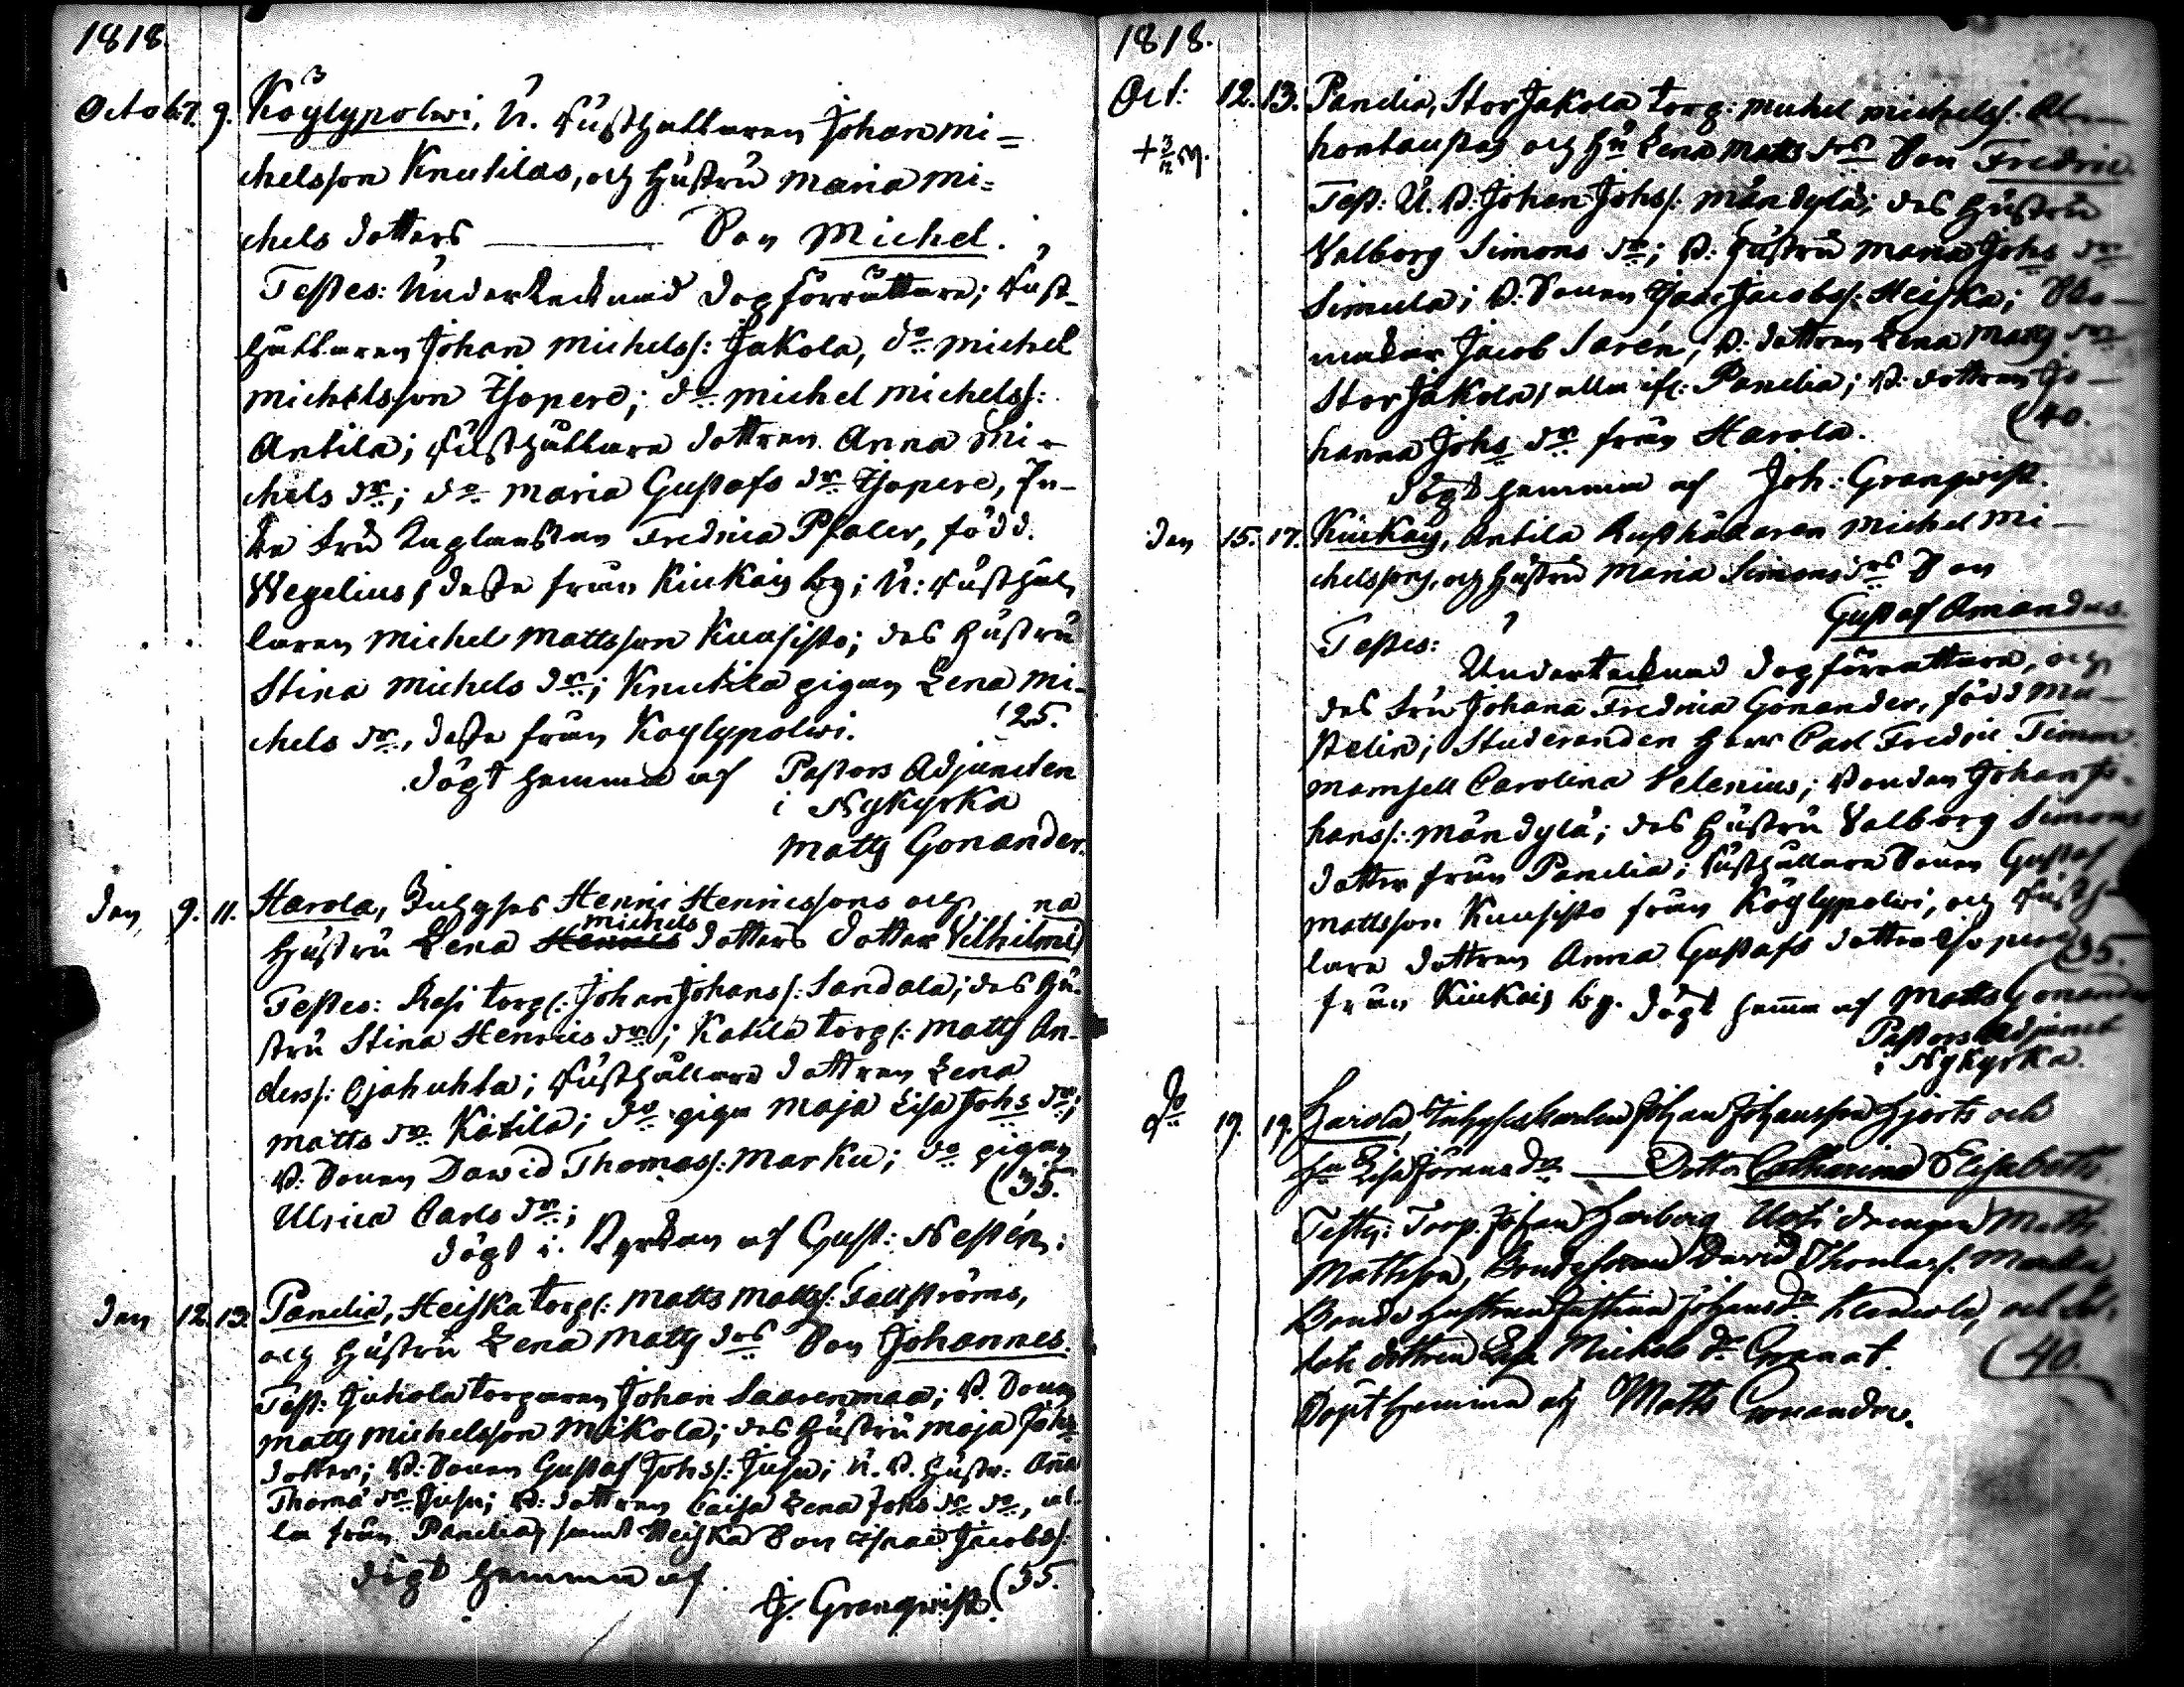 1818
Octob. 7. 9. Köylypolwi, U. Rusthållaren Johan Mi=
chelsson Knutilas, och Hustru Maria Mi=
chels dotters Son Michel.
Testes: Undertecknad Dopförrättare; Rust-
hållaren Johan Michelss: Jakola, do Michel
Michelsson Isopere; do Michel Michelss:
Antila; Rusthållare dottren Anna Mi-
chels dr; do Maria Gustafs dr Isopere, En-
ke Fru Kaplanskan Fredrica Pfaler, född
Wegelius, desse från Kiukais by; U: Rusthål
laren Michel Mattsson Kuusisto; des Hustru
Stina Michels dr; Knutila pigan Lena Mi-
chels dr, desse från Köylypolwi. (25.
döpt hemma af Pastors Adjuncten
i Nykyrka
Matts Gonander.
den 9. 11. Harola, Inhyses Henric Henricssons och
Hustru Lena Henrics Michels dotters dotter Vilhelmina
Testes: Resi torp: Johan Johanss: Sandala; des Hu-
stru Stina Henrics dr; Katila torp: Matts An-
derss: Ojahuhta; Rusthållare dottren Lena
Matts dr Katila; do piga Maja Lisa Johs dr;
B. Sonen David Thomass: Marku; do pigan
Ulrica Carls dr; (35.
döpt i Kyrkan af Gust: Nestén.
den 12. 13. Panelia, Heiska torp: Matts Matts: Fallströms,
och Hustru Lena Matts drs Son Johannes.
Test: Juhola torparen Johan Saarenmaa; B. Sonen
Matts Michelsson Mikola; des Hustru Maja Johs
dotter; B: Sonen Gustaf Johs: Jusu; U. B. Hustr: Anna
Thoma dr Jusu; B: dottren Caisa Lena Johs dr do, al-
la från Panelia, samt Heiska Son Isaac Jacobss:
döpt hemma af (35.
J. Granqwist.
1818.
Oct: 12. 13. Panelia, Stor Jakola torp: Michel Michelss:
och Hu Lena Matts drs Son Fredric.
Test: U. B. Johan Johss: Mändylä; des Hustru
Valborg Simons dr; B: Hustru Maria Johs dr
Simula; B: Sonen Isaac Jacobss: Heiska; Sko-
makar Jacob Sarén, B: dottren Lena Matts dr
Stor Jakola, alla ifr: Panelia; B: dottren Jo-
hanna Johs dr från Harola. (40.
döpt hemma af Joh: Granqwist.
den 15. 17. Kiukais, Antila Rusthållaren Michel Mi-
chelssons, och Hustru Maria Simons drs Son
Gustaf Amandus.
Testes: Undertecknad Dopförrättare, och
des Fru Johana Fredrica Gonander, född Mu-
stelin; Studeranden Herr Carl Fredric Timm
Mamsell Carolina Selenius; Bonden Johan Jo-
hanss: Mändylä; des Hustru Valborg Simons
dotter från Panelia; Rusthållare Sonen Gustaf
Mattsson Kuusisto från Köylypolwi, och Rusthål
lare dottren Anna Gustafs dotter Isopere (35.
från Kiukais by. döpt hemma af Matts Gonander
Pastors Adjunct
i Nykyrka.
do 19. 19. Harola, Inhyses karlen Johan Johansson Hjorts och
Hu Lisa Jörans dr Dotter Catharina Elisabeth.
Testes: Torp. Johan Harberg Uoti drengen Matts
Mattsson, Bondesonen David Thomass. Marku
Bonde hustrun Justina Johans dr och Sol-
dats dottren Lisa Michels dr Granat. (40.
Döpt hemma af Matts Gonander.